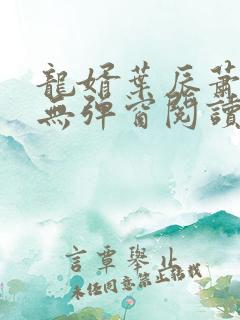 龍婿葉辰蕭
無彈窗閱讀
言覃舉止
未經同意禁止轉載